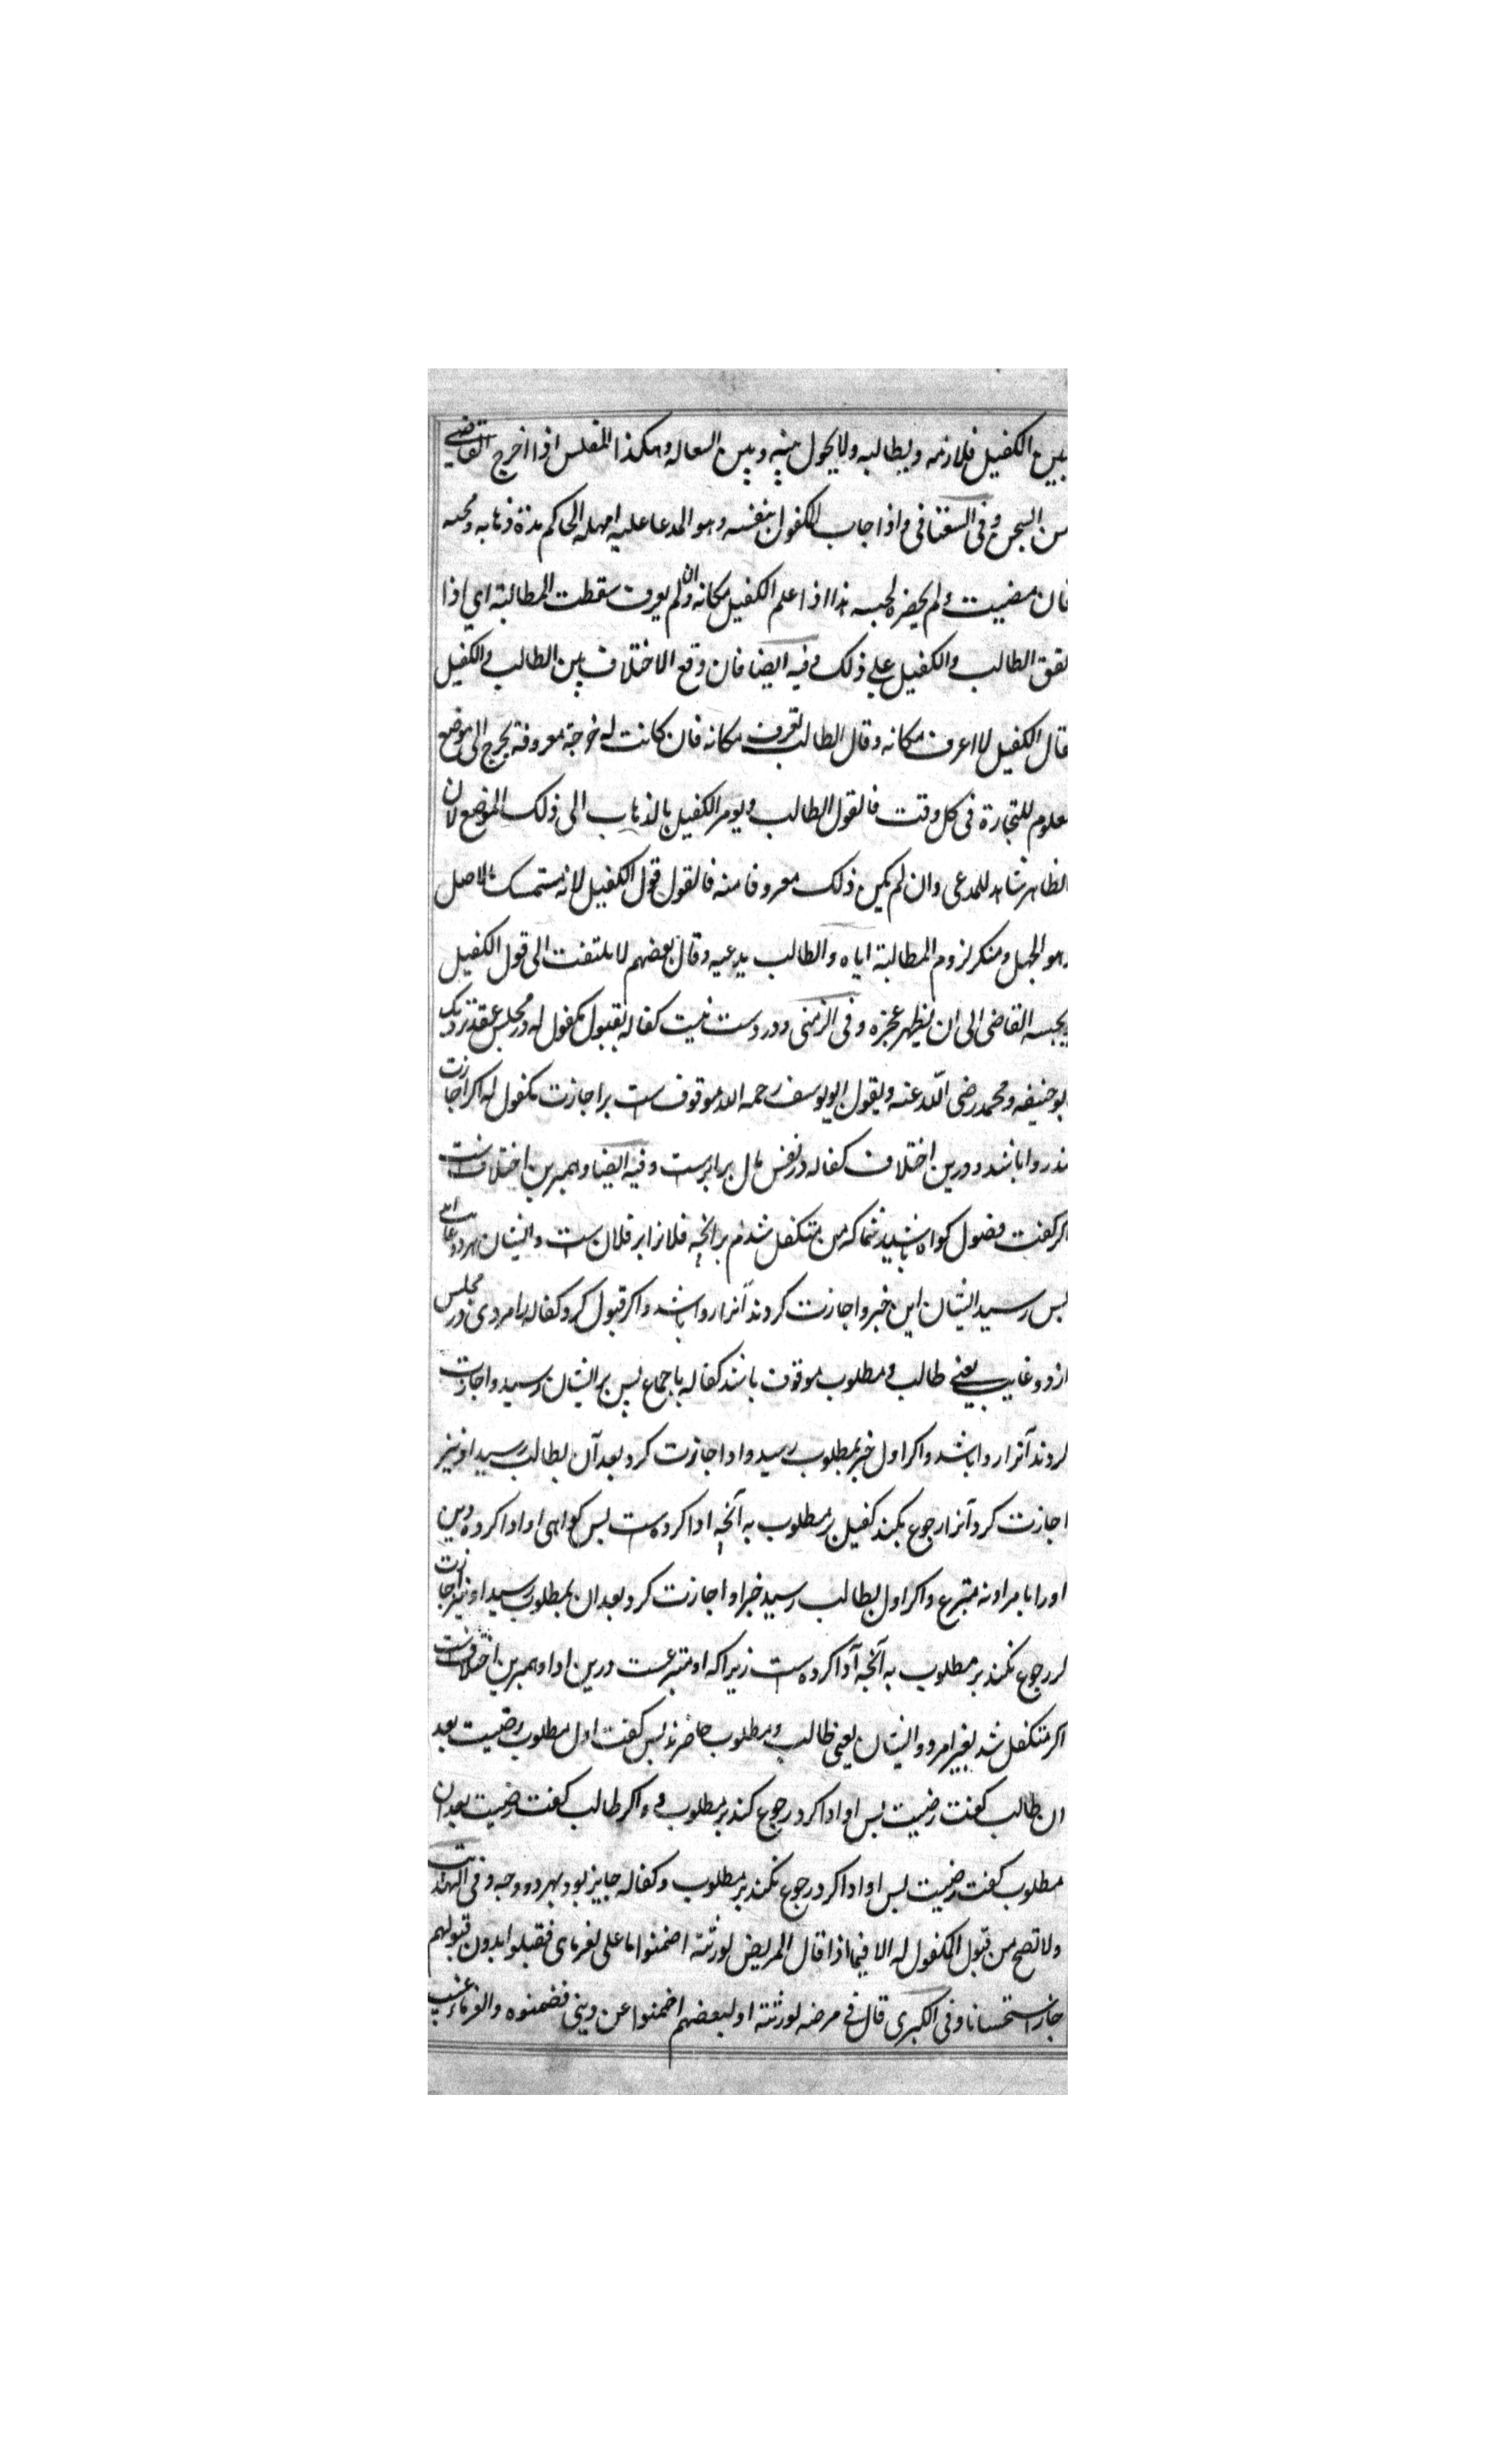 بين الكفيل فلازمه ويطالبه ولا يحول بينه وبين السعاله وهكذا المفلس اذا اخرج القاضي
من السجن وفى السغناقى واذا جاب الكفول بنفسه وهو المدعا عليه امهله الحاكم مدة ذهابه ومجيه
فان مضيت و لم يحضره لحبسه هذا اذا علم الكفيل مكانه وان لم يعرف سقطت المطالبة اي اذا
تفق الطالب والكفيل على ذلك وفيه ايضا فان وقع الاختلاف بين الطالب والكفيل
قال الكفيل لا اعرف مكانه وقال الطالب تعرف مكانه فان كانت له خرجة معروفة يخرج الى موضع
معلوم للتجارة فى كل وقت فالقول الطالب ويومر الكفيل بالذهاب الى ذلك الموضع لان
الظاهر شاهد للمدعى وان لم يكن ذلك معروفا منه فالقول قول الكفيل لانه متمسك بالاصل
وهو الجهل ومنكر لزوم المطالبة اياه والطالب يدعيه وقال بعضهم لا يلتفت الى قول الكفيل
يحبسه القاضى الى ان يظهر عجزه وفى الزمنى ودرست نيت كفاله بقبول مكفول له در مجلس عقد نزديك
بوحنيفه ومحمد رضى الله عنه وبقول ابويوسف رحمه الله موقوف ست بر اجازت مكفول له اكر اجازت
ندروا باشد ودرين اختلاف كفاله در نفس مال برابرست وفيه ايضا وهمبرين اختلاف ست
اكر كفت فضول كواه باشيد شما كه من متكفل شدم بر آنچه فلانرا بر فلان ست وايشان هر دو غايب اند
پس رسيد ايشان اين خبر واجازت كردند آنرا روا باشد واكر قبول كرد كفاله را مردى در مجلس
از دو غايب يعنے طالب و مطلوب موقوف باشد كفاله باجماع پس بر ايشان رسيد واجازت
كردند آنرا روا باشد واكر اول خبر بمطلوب رسيد واو اجازت كرد بعد آن بطالب رسيد او نيز
اجازت كرد آنرا رجوع بكند كفيل بر مطلوب به آنچه ادا كرده ست پس كواهى او ادا كرده دين
اورا بامر او نه متبرع واكر اول بطالب رسيد خبر او اجازت كرد بعد ان بمطلوب رسيد او نيز اجازت
كر رجوع نكند بر مطلوب به آنچه آدا كرده ست زيراكه او متبرعست درين ادا وهمبرين اختلاف ست
اكر متكفل شد بغير امر دو ايشان يعنى طالب ومطلوب حاضرند پس كفت اول مطلوب رضيت بعد
ان طالب كفت رضيت پس او ادا كرد رجوع كند بر مطلوب و ه اكر طالب كفت رضيت بعد ان
مطلوب كفت رضيت پس او ادا كرد رجوع نكند بر مطلوب وكفاله جايز بود بهر دو وجه وفى الهداية
ولا تصح من قبول الكفول له الا فيما اذا قال المريض لورثته اضمنوا ما على لغرماى فقبلوا بدون قبولهم
جاز استحسانا وفى الكبرى قال فى مرضه لورثته او لبعضهم اضمنوا عن دينى فضمنوه والغرماء غيب